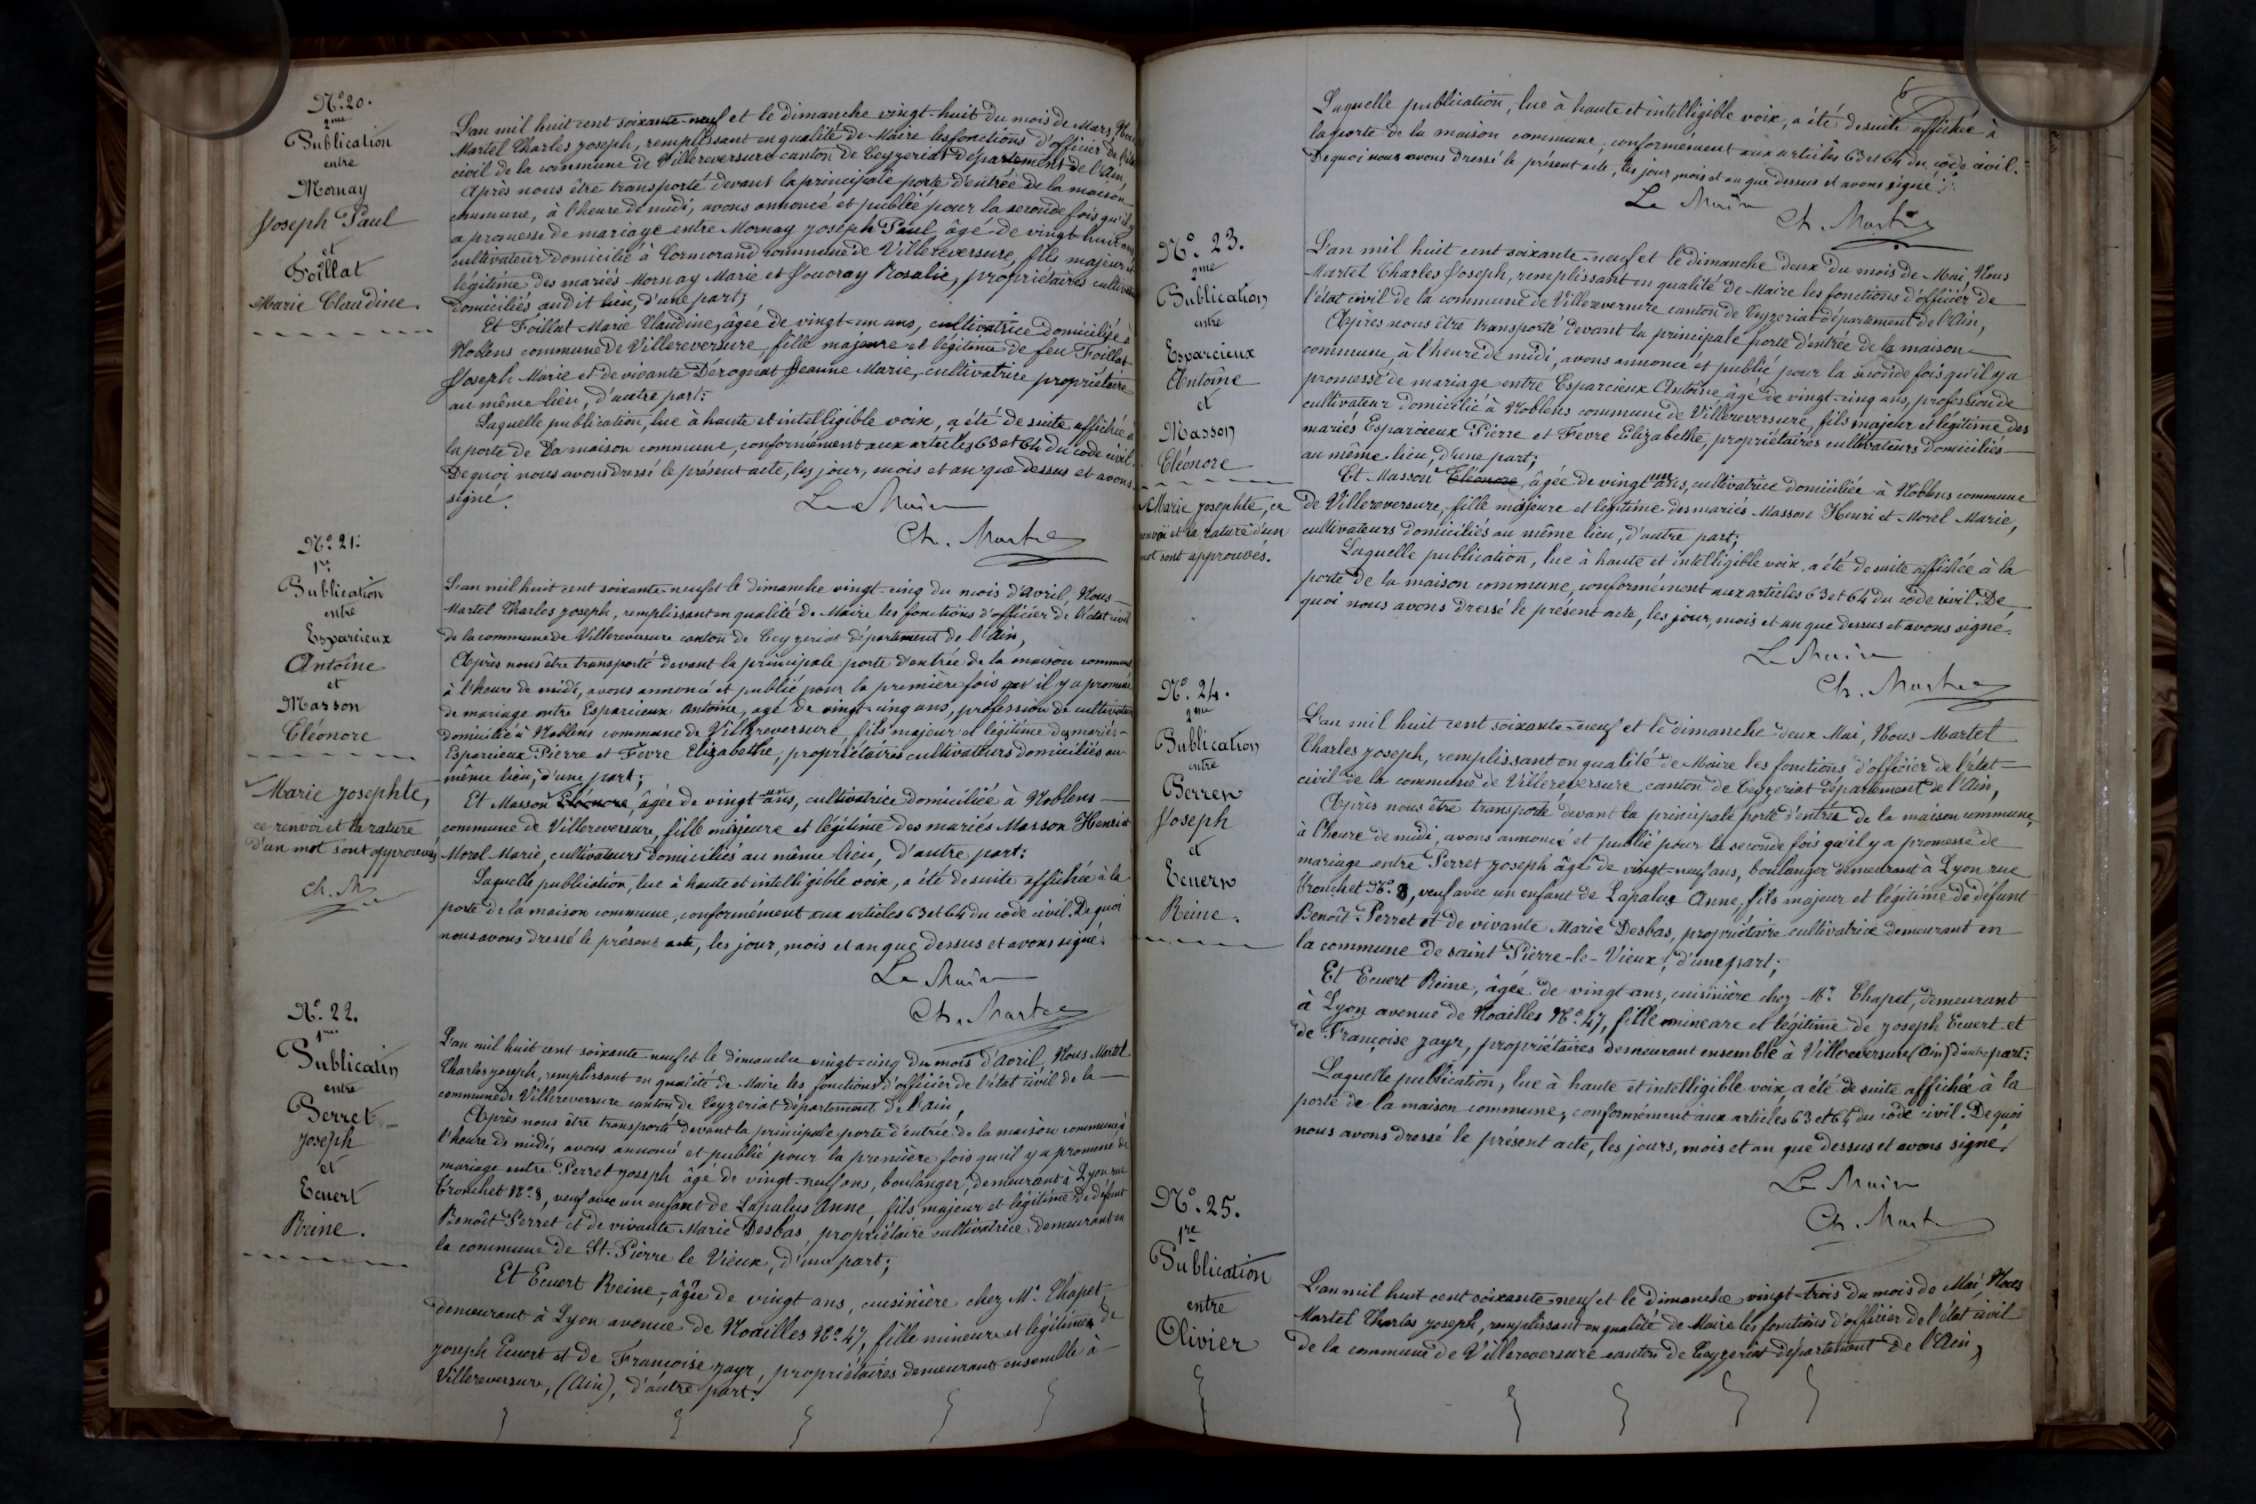 N.º 20.
2me
Publication
entre
Mornay
Joseph Paul
et
Foillat
Marie Claudine.
L'an mil huit cent soixante-neuf et le dimanche vingt-huit du mois de Mars, Nous
Martel Charles Joseph, remplissant en qualité de Maire les fonctions d'officier de l'état
civil de la commune de Villereversure canton de Ceyzeriat département de l'Ain,
Après nous être transporté devant la principale porte d'entrée de la maison
commune, à l'heure de midi, avons annoncé et publié pour la seconde fois qu'il y
a promesse de mariage entre Mornay Joseph Paul, âgé de vingt-huit ans
cultivateur domicilié à Cormorand commune de Villereversure, fils majeur et
légitime des mariés Mornay Marie et Rosalie, propriétaires cultivateurs
domiciliés audit lieu, d'une part;
Et Foillat Marie Claudine, âgée de vingt-un ans, cultivatrice domiciliée à
Noblens commune de Villereversure, fille majeure et légitime de feu Foillat
Joseph Marie et de vivante Dérognat Jeanne Marie, cultivatrice propriétaire
au même lieu, d'autre part:
Laquelle publication, lue à haute et intelligible voix, a été de suite affichée à
la porte de la maison commune, conformément aux articles 63 et 64 du code civil.
De quoi nous avons dressé le présent acte, les jour, mois et an que dessus et avons
signé.
Le Maire
Ch. Martel
N.º 21.
1re
Publication
entre
Esparcieux
Antoine
et
Masson
Eléonore
Marie Josephte,
ce renvoi et la rature
d'un mot sont approuvés
Ch. M
L'an mil huit cent soixante-neuf et le dimanche vingt-cinq du mois d'avril, Nous
Martel Charles Joseph, remplissant en qualité de Maire les fonctions d'officier de l'état civil
de la commune de Villereversure canton de Ceyzeriat département de l'Ain,
Après nous être transporté devant la principale porte d'entrée de la maison commune
à l'heure de midi, avons annoncé et publié pour la première fois qu'il y a promesse
de mariage entre Esparcieux Antoine, âgé de vingt-cinq ans, profession de cultivateur
domicilié à Noblens commune de Villereversure, fils majeur et légitime des mariés
Esparcieux Pierre et Fevre Elizabethe, propriétaires cultivateurs domiciliés au
même lieu, d'une part;
Et Masson Eléonore, âgée de vingt un ans, cultivatrice domiciliée à Noblens
commune de Villereversure, fille majeure et légitime des mariés Masson Henri et
Morel Marie, cultivateurs domiciliés au même lieu, d'autre part:
Laquelle publication, lue à haute et intelligible voix, a été de suite affichée à la
porte de la maison commune, conformément aux articles 63 et 64 du code civil. De quoi
nous avons dressé le présent acte, les jour, mois et an que dessus et avons signé.
Le Maire
Ch. Martel
N.º 22.
1re
Publication
entre
Perret
Joseph
et
Ecuert
Reine.
L'an mil huit cent soixante-neuf et le dimanche vingt-cinq du mois d'avril, Nous Martel
Charles Joseph, remplissant en qualité de Maire les fonctions d'officier de l'état civil de la
commune de Villereversure canton de Ceyzeriat département de l'Ain,
Après nous être transporté devant la principale porte d'entrée de la maison commune à
l'heure de midi, avons annoncé et publié pour la première fois qu'il y a promesse de
mariage entre Perret Joseph âgé de vingt-neuf ans, boulanger, demeurant à Lyon rue
Tronchet N.º 8, veuf avec un enfant de Lapalus Anne, fils majeur et légitime de défunt
Benoît Perret et de vivante Marie Desbas, propriétaire cultivatrice demeurant en
la commune de St. Pierre le Vieux, d'une part;
Et Ecuert Reine, âgée de vingt ans, cuisinière chez Mr. Chapet,
demeurant à Lyon avenue de Noailles N.º 47, fille mineure et légitime de
Joseph Ecuert et de Françoise Jayr, propriétaires demeurant ensemble à
Villereversure, (Ain), d'autre part:
6
Laquelle publication, lue à haute et intelligible voix, a été de suite affichée à
la porte de la maison commune, conformément aux articles 63 et 64 du code civil.
De quoi nous avons dressé le présent acte, les jour, mois et an que dessus et avons signé.
Le Maire
Ch. Martel
N.º 23.
2me
Publication
entre
Esparcieux
Antoine
et
Masson
Eléonore
Marie Josephte, ce
renvoi et la rature d'un
mot sont approuvés.
L'an mil huit cent soixante-neuf et le dimanche deux du mois de Mai, Nous
Martel Charles Joseph, remplissant en qualité de Maire les fonctions d'officier de
l'état civil de la commune de Villereversure canton de Ceyzeriat département de l'Ain,
Après nous être transporté devant la principale porte d'entrée de la maison
commune, à l'heure de midi, avons annoncé et publié pour la seconde fois qu'il y a
promesse de mariage entre Esparcieux Antoine âgé de vingt-cinq ans, profession de
cultivateur domicilié à Noblens commune de Villereversure, fils majeur et légitime des
mariés Esparcieux Pierre et Fevre Elizabethe, propriétaires cultivateurs domiciliés
au même lieu, d'une part;
Et Masson Eléonore, âgée de vingt un ans, cultivatrice domiciliée à Noblens commune
de Villereversure, fille majeure et légitime des mariés Masson Henri et Morel Marie,
cultivateurs domiciliés au même lieu, d'autre part;
Laquelle publication, lue à haute et intelligible voix, a été de suite affichée à la
porte de la maison commune, conformément aux articles 63 et 64 du code civil. De
quoi nous avons dressé le présent acte, les jour, mois et an que dessus et avons signé.
Le Maire
Ch. Martel
N.º 24.
2me
Publication
entre
Perret
Joseph
et
Ecuert
Reine.
L'an mil huit cent soixante-neuf et le dimanche deux Mai, Nous Martel
Charles Joseph, remplissant en qualité de Maire les fonctions d'officier de l'état
civil de la commune de Villereversure canton de Ceyzeriat département de l'Ain,
Après nous être transporté devant la principale porte d'entrée de la maison commune,
à l'heure de midi, avons annoncé et publié pour la seconde fois qu'il y a promesse de
mariage entre Perret Joseph âgé de vingt-neuf ans, boulanger demeurant à Lyon rue
Tronchet N.º 8, veuf avec un enfant de Lapalus Anne, fils majeur et légitime de défunt
Benoît Perret et de vivante Marie Desbas, propriétaire cultivatrice demeurant en
la commune de saint Pierre-le-Vieux, d'une part;
Et Ecuert Reine, âgée de vingt ans, cuisinière chez Mr. Chapet, demeurant
à Lyon avenue de Noailles N.º 47, fille mineure et légitime de Joseph Ecuert et
de Françoise Jayr, propriétaires demeurant ensemble à Villereversure (Ain) d'autre part:
Laquelle publication, lue à haute et intelligible voix, a été de suite affichée à la
porte de la maison commune, conformément aux articles 63 et 64 du code civil. De quoi
nous avons dressé le présent acte, les jours, mois et an que dessus et avons signé.
Le Maire
Ch. Martel
N.º 25.
1re
Publication
entre
Olivier
L'an mil huit cent soixante-neuf et le dimanche vingt-trois du mois de Mai, Nous
Martel Charles Joseph, remplissant en qualité de Maire les fonctions d'officier de l'état civil
de la commune de Villereversure canton de Ceyzeriat département de l'Ain,